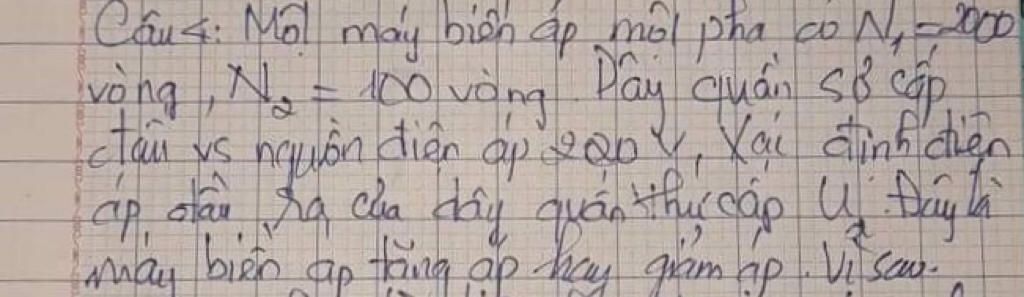 Câu 4: Một máy biến áp một pha có N₁ = 2000
vòng, N₂ = 100 vòng. Dây quấn sơ cấp
đấu vs nguồn điện áp 220 V, Xái định điện
áp đầu ra của dây quấn thứ cấp U₂. Đây là
máy biến áp tăng áp hay giảm áp. Vì sao.